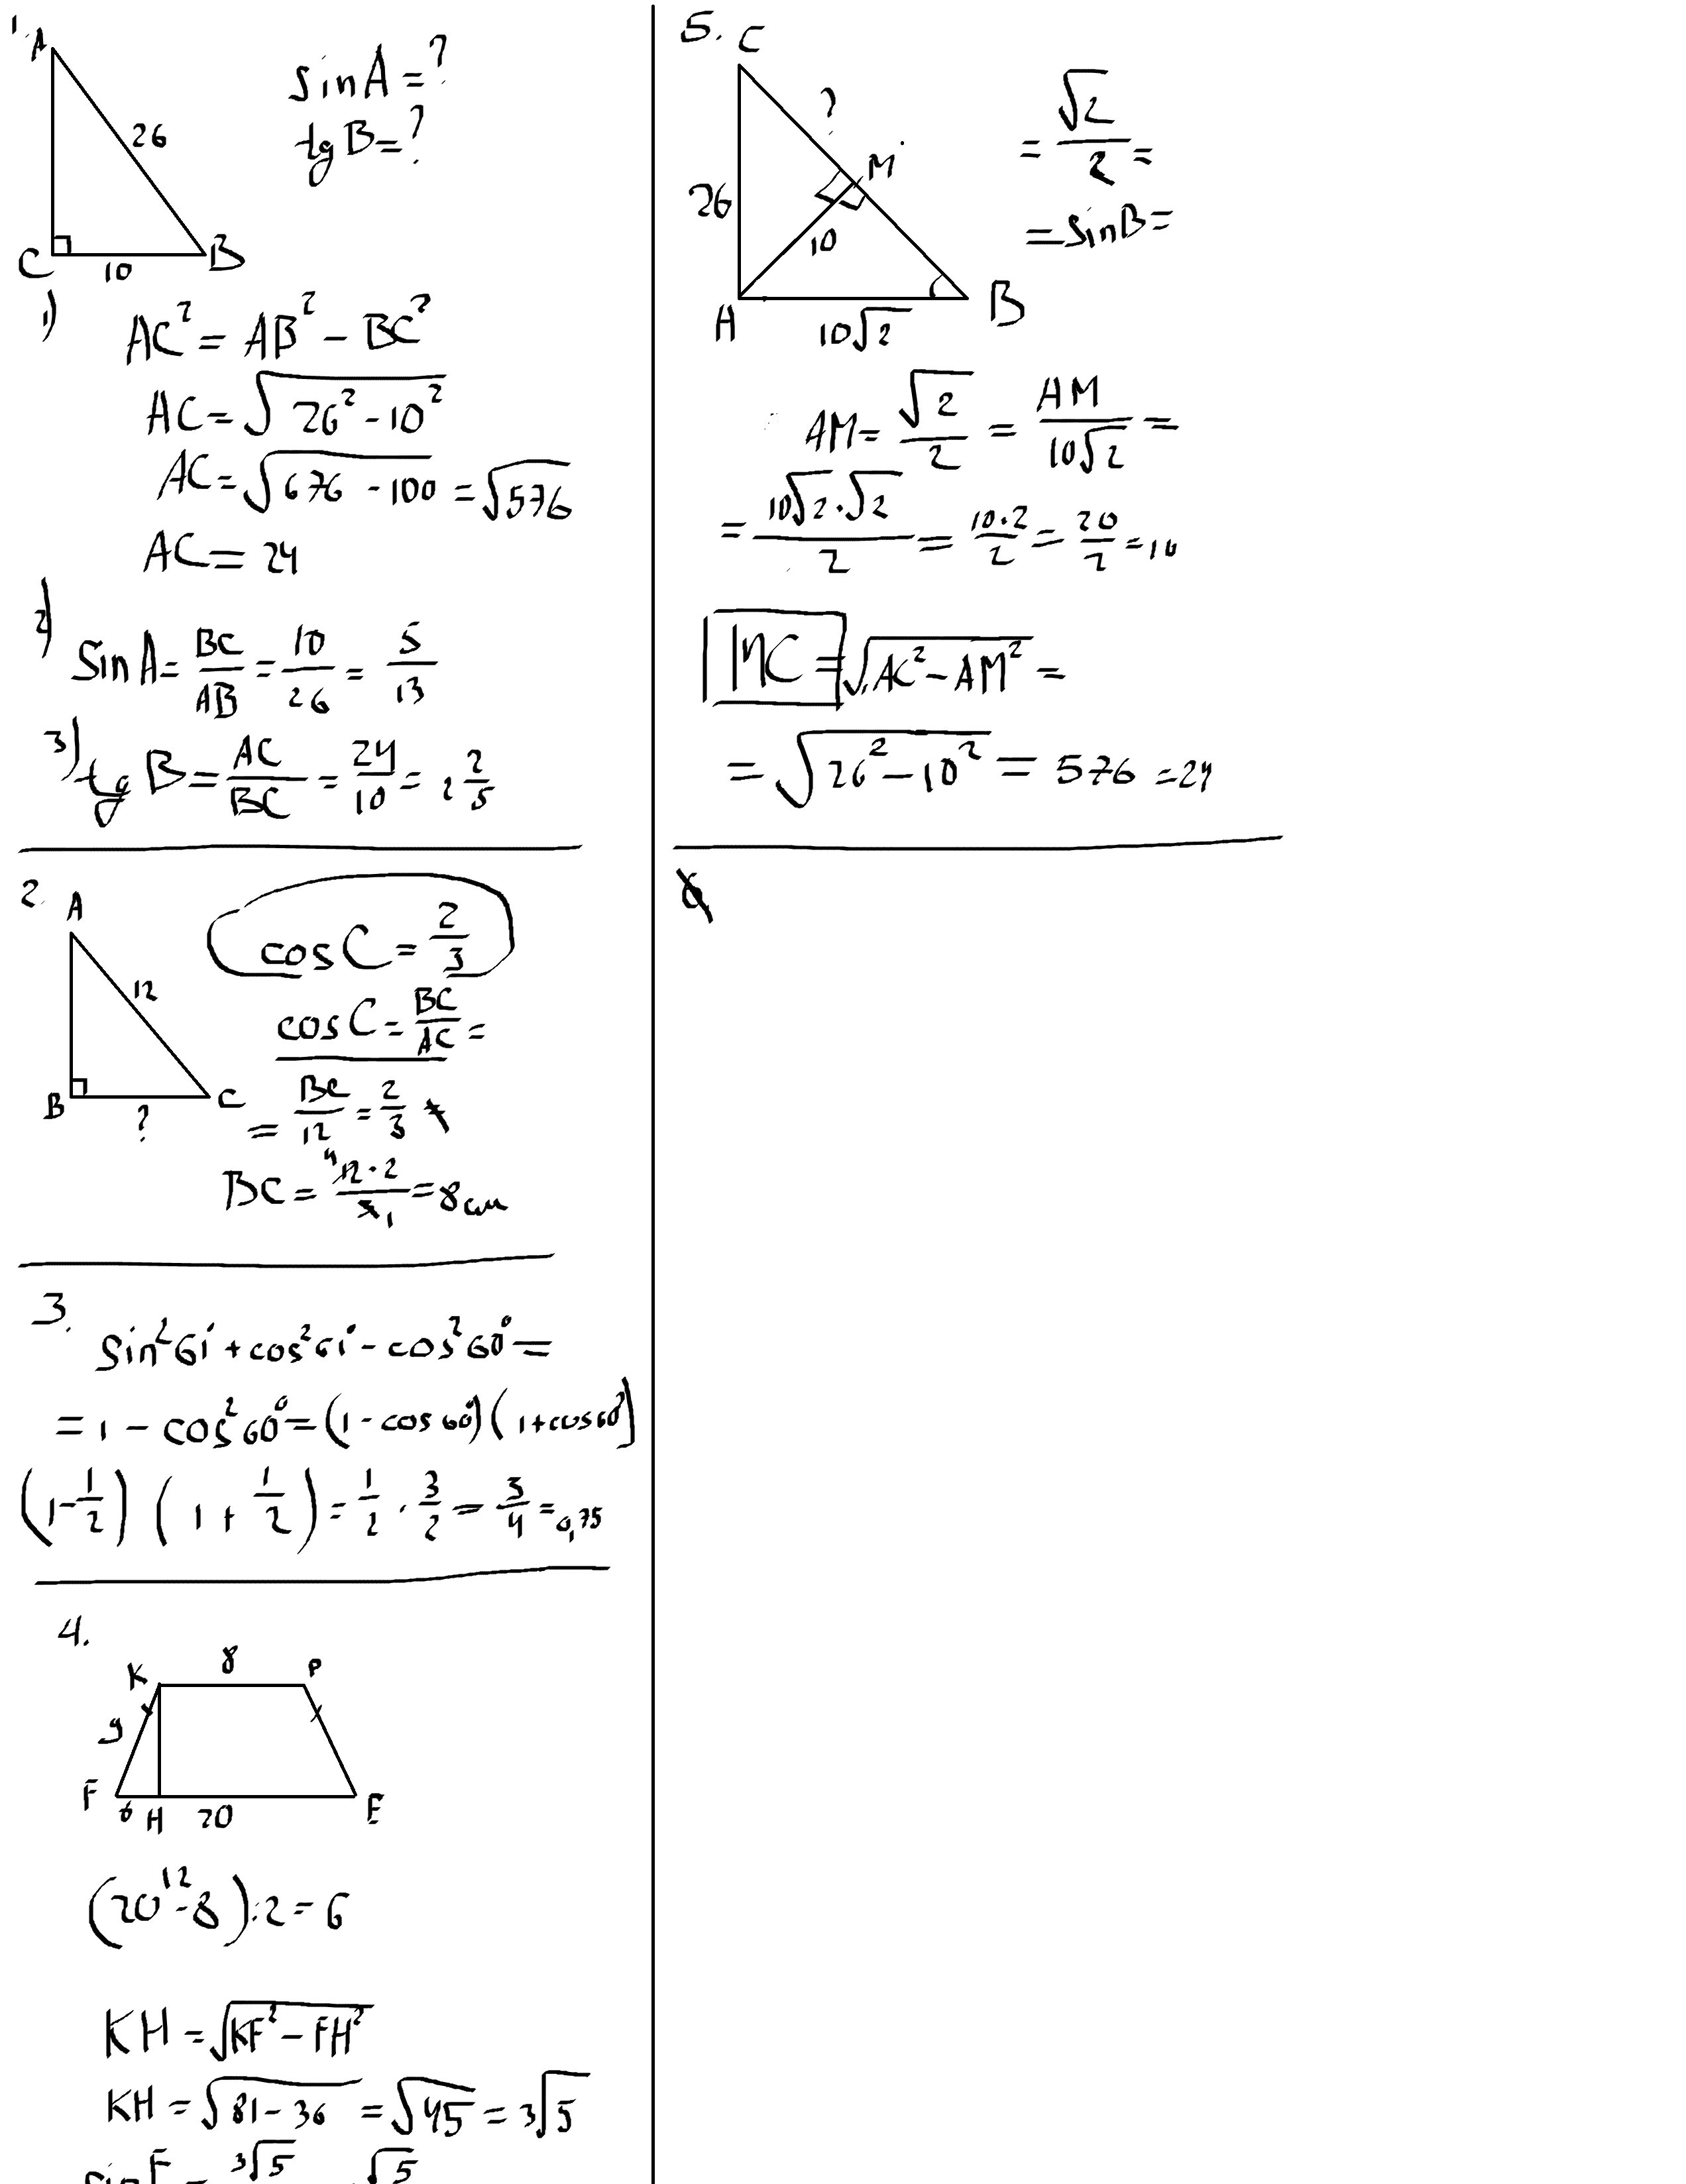 1.
A
26
C
10
B
sinA = ?
tgB = ?
1)
AC² = AB² - BC²
AC = √26² - 10²
AC = √676 - 100 = √576
AC = 24
2)
Sin A = BC/AB = 10/26 = 5/13
3) tg B = AC/BC = 24/10 = 2 2/5
2.
A
12
B
?
C
cos C = 2/3
cos C = BC/AC =
= BC/12 = 2/3
BC = 12·2/3 = 8 см
4
1
3.
sin²61° + cos²61° - cos²60° =
= 1 - cos²60° = (1 - cos60°)(1 + cos60°)
(1 - 1/2) (1 + 1/2) = 1/2 · 3/2 = 3/4 = 0,75
4.
K
8
P
9
F
6
H
20
E
12
(20 - 8):2 = 6
KH = √KF² - FH²
KH = √81 - 36 = √45 = 3√5
sin F = 3√5 = √5
5.
C
?
M
26
10
H
10√2
B
= √2/2 =
= sinB =
AM = √2/2 = AM/10√2 =
= 10√2·√2/2 = 10·2/2 = 20/2 = 10
MC = √AC² - AM² =
= √26² - 10² = 576 = 24